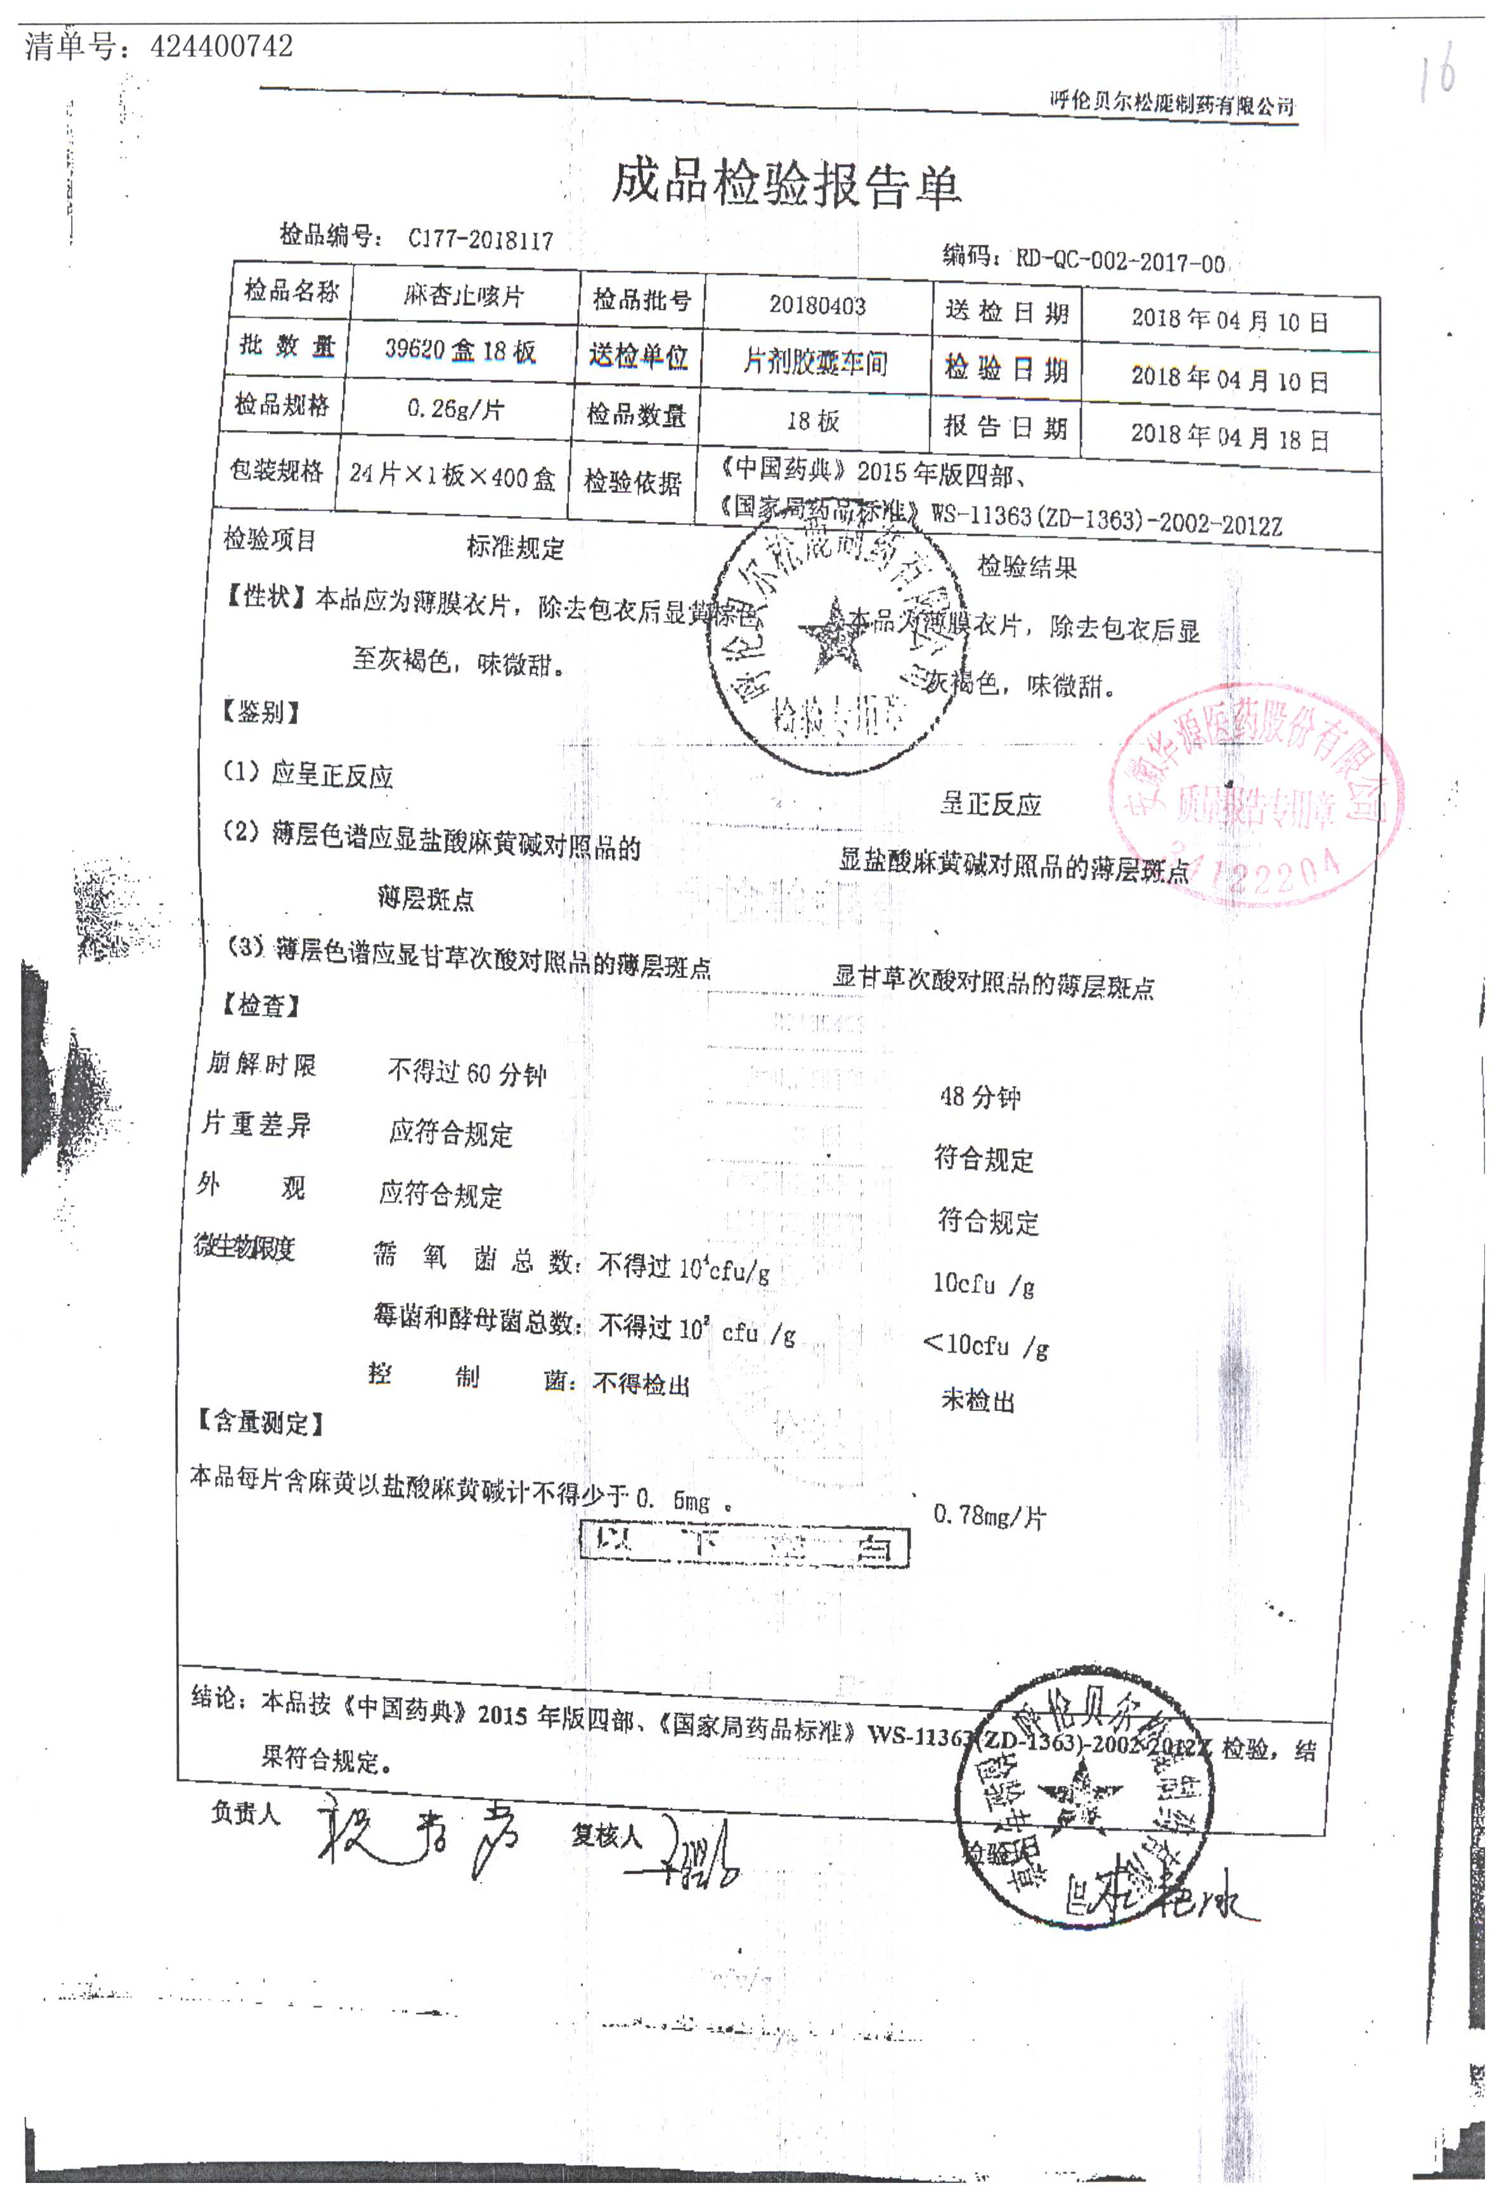 清单号：424400742
16
呼伦贝尔松鹿制药有限公司
成品检验报告单
检品编号： C177-2018117
编码：RD-QC-002-2017-00
检品名称 麻杏止咳片 检品批号 20180403 送检日期 2018年04月10日
批数量 39620盒18板 送检单位 片剂胶囊车间 检验日期 2018年04月10日
检品规格 0.26g/片 检品数量 18板 报告日期 2018年04月18日
包装规格 24片×1板×400盒 检验依据 《中国药典》2015年版四部、
《国家局药品标准》WS-11363(ZD-1363)-2002-2012Z
检验项目 标准规定 检验结果
【性状】本品应为薄膜衣片，除去包衣后显黄棕色 本品为薄膜衣片，除去包衣后显
至灰褐色，味微甜。 灰褐色，味微甜。
呼伦贝尔松鹿制药有限公司
检验专用章
【鉴别】
安徽华源医药股份有限公司
质量报告专用章
34122204
（1）应呈正反应 呈正反应
（2）薄层色谱应显盐酸麻黄碱对照品的 显盐酸麻黄碱对照品的薄层斑点
薄层斑点
（3）薄层色谱应显甘草次酸对照品的薄层斑点 显甘草次酸对照品的薄层斑点
【检查】
崩解时限 不得过60分钟 48分钟
片重差异 应符合规定 符合规定
外 观 应符合规定 符合规定
微生物限度 需氧菌总数：不得过10⁴cfu/g 10cfu /g
霉菌和酵母菌总数：不得过10² cfu /g <10cfu /g
控 制 菌：不得检出 未检出
【含量测定】
本品每片含麻黄以盐酸麻黄碱计不得少于0. 6mg 。 0.78mg/片
以 下 空 白
结论：本品按《中国药典》2015 年版四部、《国家局药品标准》WS-11363(ZD-1363)-2002-2012Z 检验，结
果符合规定。
呼伦贝尔松鹿制药有限公司
负责人 复核人 检验